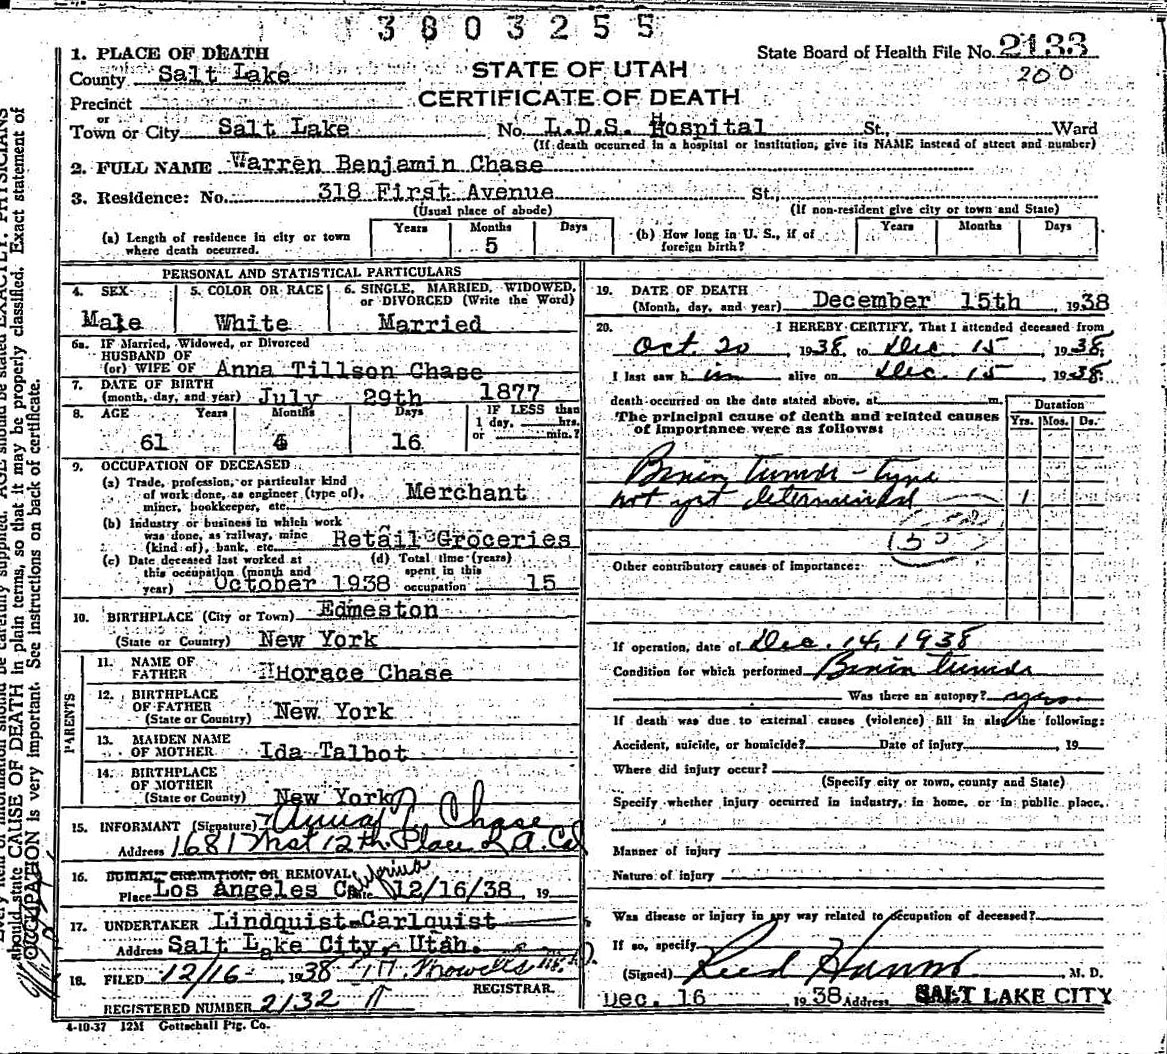 3803255
1. PLACE OF DEATH
State Board of Health File No. 2133
County Salt Lake
200
STATE OF UTAH
Precinct
CERTIFICATE OF DEATH
or
Town or City Salt Lake No. L.D.S. Hospital St., Ward
(If death occurred in a hospital or institution, give its NAME instead of street and number)
2. FULL NAME Warren Benjamin Chase
3. Residence: No. 318 First Avenue St.,
(Usual place of abode) (If non-resident give city or town and State)
(a) Length of residence in city or town where death occurred. Years Months 5 Days
(b) How long in U. S., if of foreign birth? Years Months Days
PERSONAL AND STATISTICAL PARTICULARS
4. SEX Male
5. COLOR OR RACE White
6. SINGLE, MARRIED, WIDOWED, or DIVORCED (Write the Word) Married
6a. IF Married, Widowed, or Divorced
HUSBAND OF
(or) WIFE OF Anna Tillson Chase
7. DATE OF BIRTH
(month, day, and year) July 29th 1877
8. AGE Years Months Days IF LESS than
1 day, hrs.
or min.?
61 16
9. OCCUPATION OF DECEASED
(a) Trade, profession, or particular kind
of work done, as engineer (type of),
miner, bookkeeper, etc. Merchant
(b) Industry or business in which work
was done, as railway, mine
(kind of), bank, etc. Retail Groceries
(c) Date deceased last worked at
this occupation (month and
year) October 1938
(d) Total time (years)
spent in this
occupation 15
10. BIRTHPLACE (City or Town) Edmeston
(State or Country) New York
PARENTS
11. NAME OF
FATHER Horace Chase
12. BIRTHPLACE
OF FATHER
(State or Country) New York
13. MAIDEN NAME
OF MOTHER Ida Talbot
14. BIRTHPLACE
OF MOTHER
(State or Country) New York
15. INFORMANT (Signature) Anna T. Chase
Address 1681 West 12th. Place L.A. Cal
16. BURIAL, CREMATION, OR REMOVAL
Place Los Angeles California Date 12/16/38, 19
17. UNDERTAKER Lindquist-Carlquist
Address Salt Lake City, Utah.
18. FILED 12/16 1938
REGISTRAR.
REGISTERED NUMBER 2132
4-10-37 12M Gottschall Ptg. Co.
19. DATE OF DEATH
(Month, day, and year) December 15th, 1938
20. I HEREBY CERTIFY, That I attended deceased from
Oct. 20, 1938, to Dec. 15, 1938;
I last saw him alive on Dec. 15, 1938;
death occurred on the date stated above, at m.
The principal cause of death and related causes
of importance were as follows:
Duration
Yrs. Mos. Ds.
Brain tumor - type
not yet determined 1
Other contributory causes of importance:
If operation, date of Dec. 14, 1938
Condition for which performed Brain tumor
Was there an autopsy? yes
If death was due to external causes (violence) fill in also the following:
Accident, suicide, or homicide? Date of injury, 19
Where did injury occur?
(Specify city or town, county and State)
Specify whether injury occurred in industry, in home, or in public place.
Manner of injury
Nature of injury
Was disease or injury in any way related to occupation of deceased?
If so, specify
(Signed) Reed M. D.
Dec. 16 1938 Address SALT LAKE CITY
be carefully supplied. AGE should be stated EXACTLY. PHYSICIANS
should state CAUSE OF DEATH in plain terms, so that it may be properly classified. Exact statement of
OCCUPATION is very important. See instructions on back of certificate.